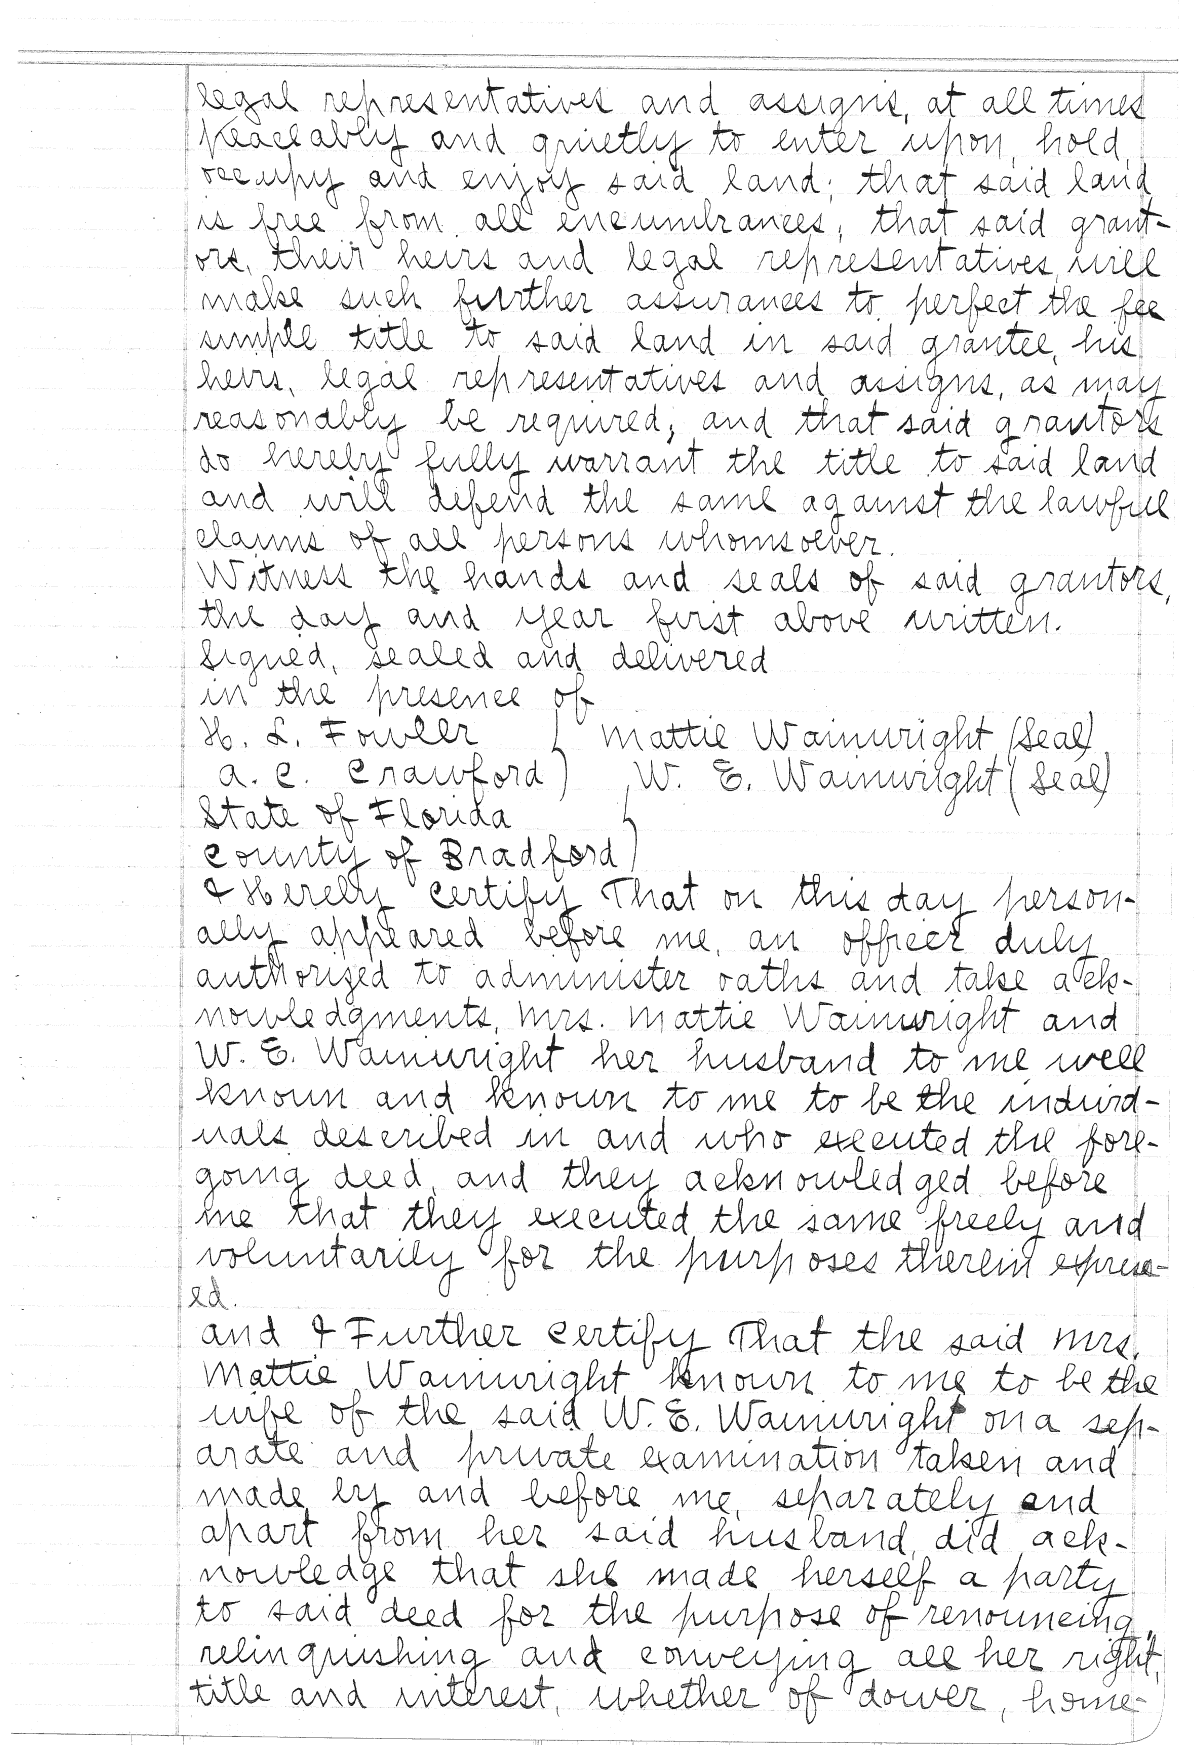 legal representatives and assigns, at all times
peaceably and quietly to enter upon, hold,
occupy and enjoy said land; that said land
is free from all encumbrances; that said grant-
ors, their heirs and legal representatives will
make such further assurances to perfect the fee
simple title to said land in said grantee, his
heirs, legal representatives and assigns, as may
reasonably be required; and that said grantors
do hereby fully warrant the title to said land
and will defend the same against the lawful
claims of all persons whomsoever.
Witness the hands and seals of said grantors,
the day and year first above written.
Signed, sealed and delivered
in the presence of
H. L. Fowler ) Mattie Wainwright (Seal)
A. C. Crawford ) W. E. Wainwright (Seal)
State of Florida )
County of Bradford )
I Hereby Certify That on this day person-
ally appeared before me, an officer duly
authorized to administer oaths and take ack-
nowledgments, Mrs. Mattie Wainwright and
W. E. Wainwright her husband to me well
known and known to me to be the individ-
uals described in and who executed the fore-
going deed, and they acknowledged before
me that they executed the same freely and
voluntarily for the purposes therein express-
ed.
and I Further Certify That the said Mrs.
Mattie Wainwright known to me to be the
wife of the said W. E. Wainwright on a sep-
arate and private examination taken and
made by and before me, separately and
apart from her said husband, did ack-
nowledge that she made herself a party
to said deed for the purpose of renouncing,
relinquishing and conveying all her right,
title and interest, whether of dower, home-